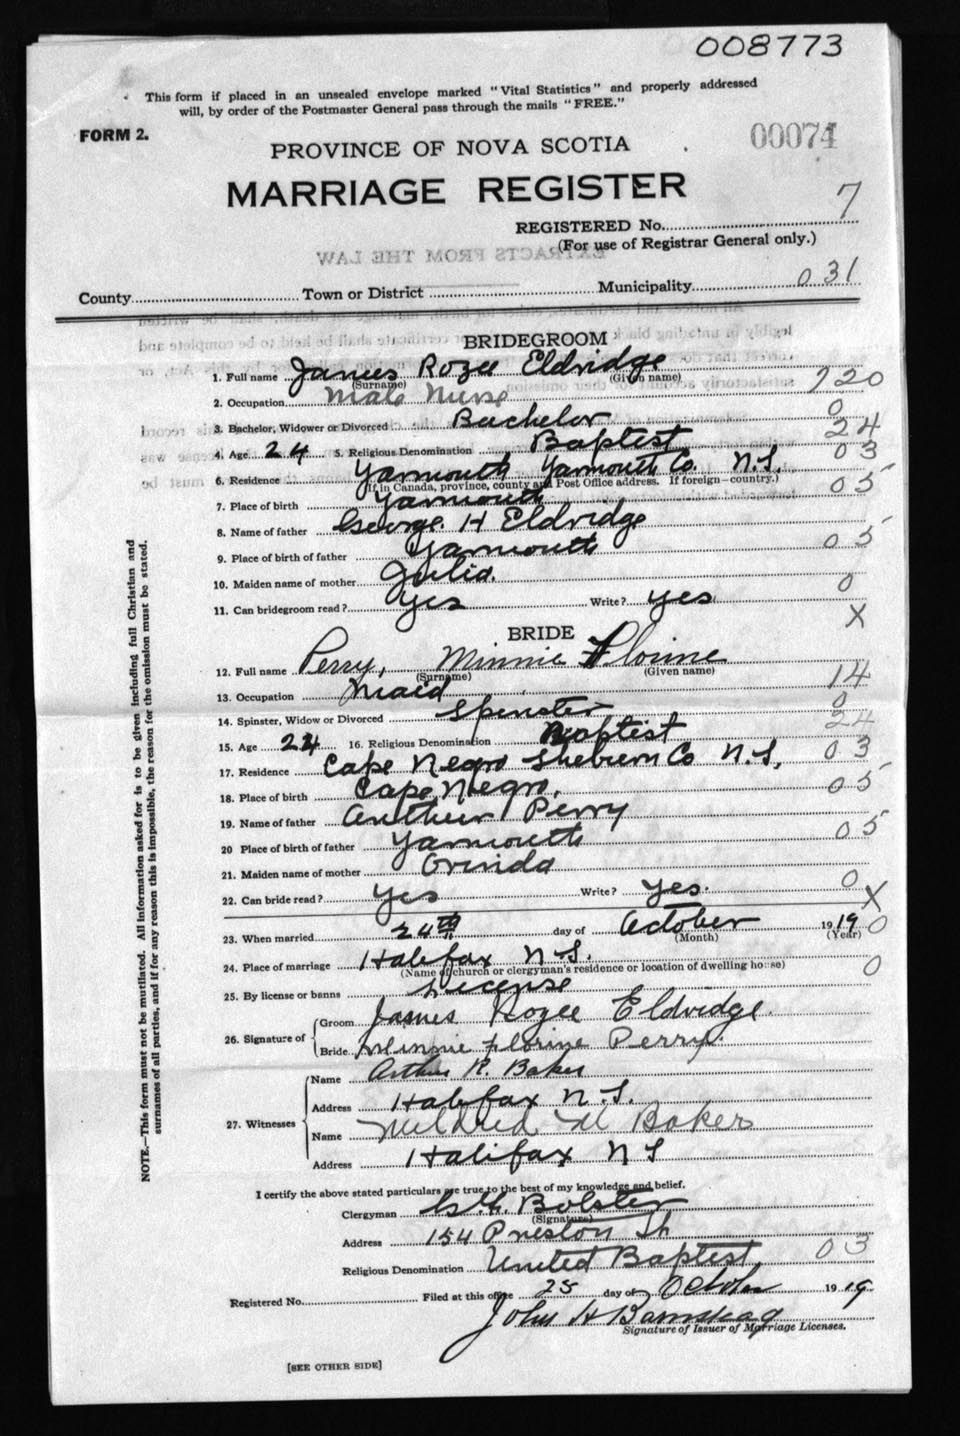 008773
This form if placed in an unsealed envelope marked "Vital Statistics" and properly addressed
will, by order of the Postmaster General pass through the mails "FREE."
FORM 2.
00074
PROVINCE OF NOVA SCOTIA
MARRIAGE REGISTER
REGISTERED No. 7
(For use of Registrar General only.)
EXTRACTS FROM THE LAW
County Town or District Municipality 031
BRIDEGROOM
1. Full name James Rozee Eldridge
(Surname) (Given name)
2. Occupation Male Nurse 720
3. Bachelor, Widower or Divorced Bachelor 0
4. Age 24 5. Religious Denomination Baptist 24
6. Residence Yarmouth Yarmouth Co. N.S. 03
(If in Canada, province, county and Post Office address. If foreign—country.)
7. Place of birth Yarmouth 05
8. Name of father George H Eldridge
9. Place of birth of father Yarmouth 05
10. Maiden name of mother Julia.
11. Can bridegroom read? Yes Write? Yes 0
X
BRIDE
12. Full name Perry, Minnie Florine
(Surname) (Given name)
13. Occupation Maid 14
14. Spinster, Widow or Divorced Spinster 0
15. Age 24 16. Religious Denomination Baptist 24
17. Residence Cape Negro Sheburn Co N.S, 03
18. Place of birth Cape Negro, 05
19. Name of father Arthur Perry
20 Place of birth of father Yarmouth 05
21. Maiden name of mother Orinda
22. Can bride read? Yes Write? Yes. 0
X
23. When married 24th day of October 1919 0
(Month) (Year)
24. Place of marriage Halifax N.S.
(Name of church or clergyman's residence or location of dwelling house) 0
25. By license or banns License
26. Signature of Groom James Rozee Eldridge.
Bride Minnie Florine Perry.
27. Witnesses Name Arthur R. Baker
Address Halifax N.S.
Name Mildred M Baker
Address Halifax N S
I certify the above stated particulars are true to the best of my knowledge and belief.
Clergyman Bolster
(Signature)
Address 154 Preston St
Religious Denomination United Baptist 03
Registered No. Filed at this office 25 day of October 1919
John H Barnstead
Signature of Issuer of Marriage Licenses.
[SEE OTHER SIDE]
NOTE.—This form must not be mutilated. All information asked for is to be given including full Christian and
surnames of all parties, and if for any reason this is impossible, the reason for the omission must be stated.